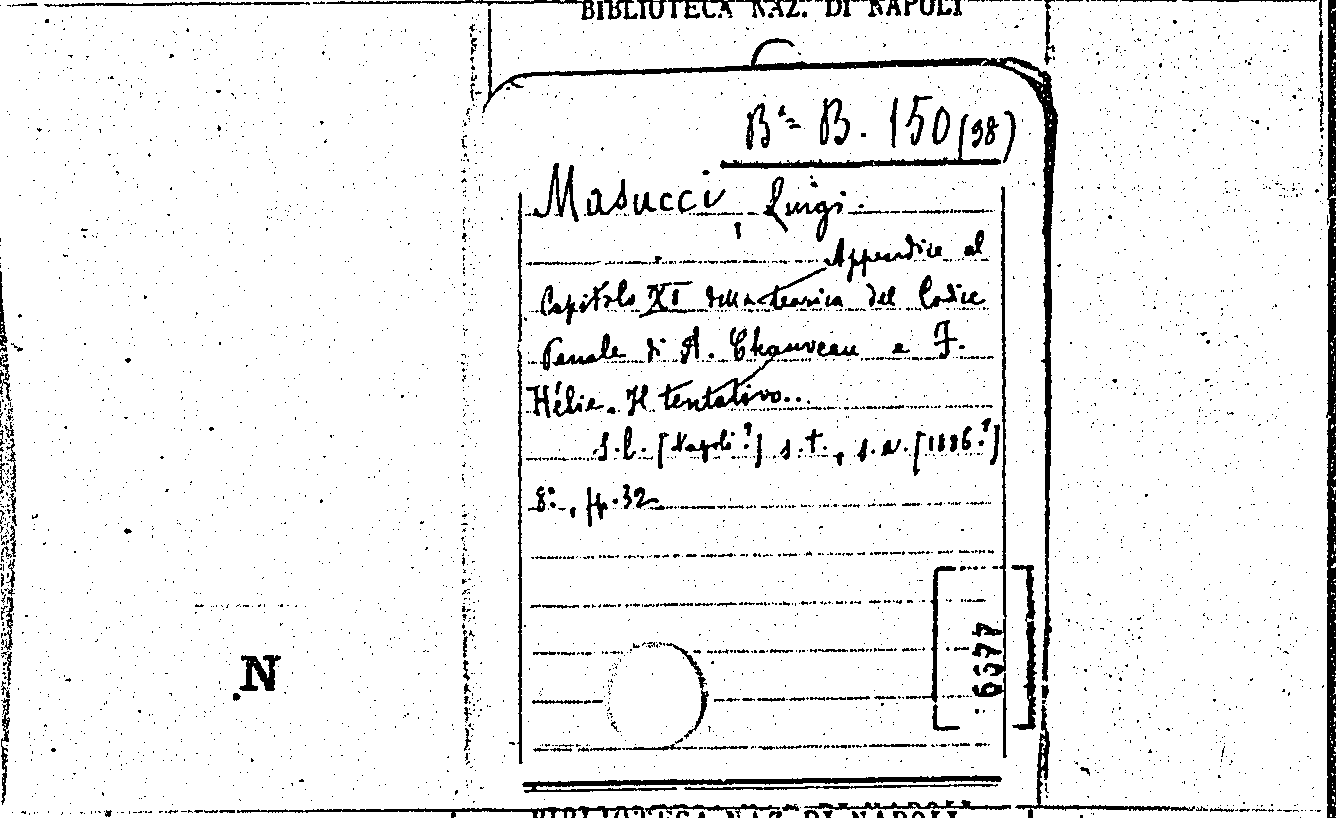 BIBLIOTECA NAZ. DI NAPOLI
Bª = B. 150 (38)
Masucci, Luigi.
Appendice al
Capitolo XI della teorica del Codice
Penale di A. Chauveau e F.
Hélie. Il tentativo...
s.l. [Napoli?] s.t., s.a. [1886?]
8°., pp. 32
6677
N
BIBLIOTECA NAZ. DI NAPOLI